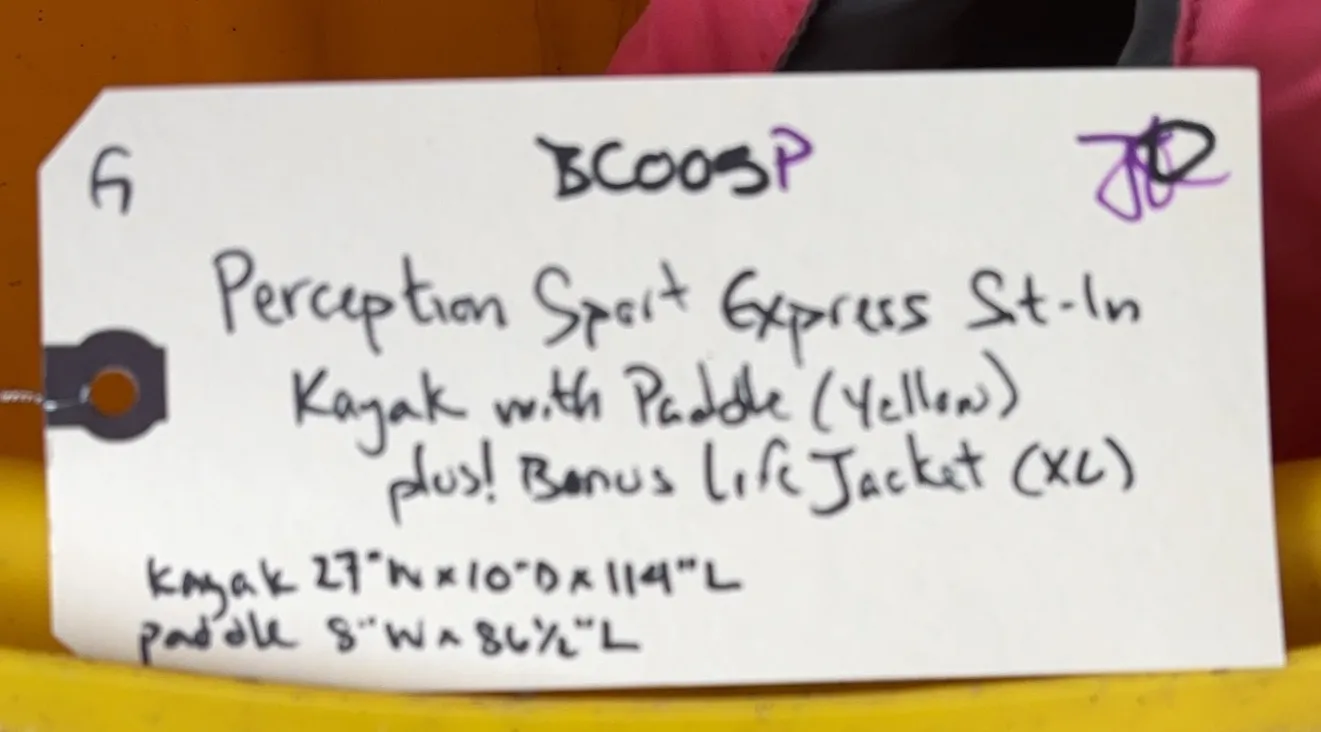 G
BC005P
Perception Sport Express St-In
Kayak with Paddle (Yellow)
plus! Bonus Life Jacket (XL)
Kayak 27"W x 10"D x 114"L
paddle 8"W x 86½"L